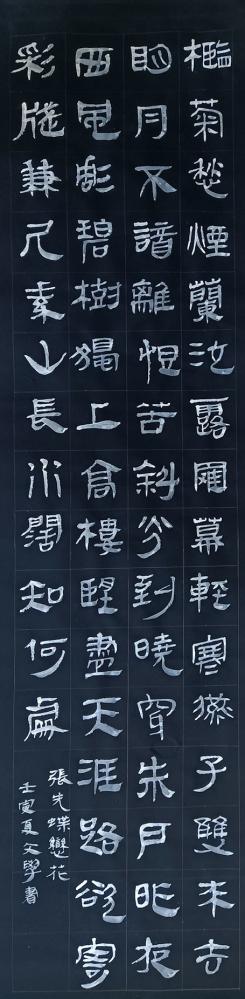 檻菊愁煙蘭泣露羅幕輕寒燕子雙来去
明月不諳離恨苦斜光到曉穿朱戶昨夜
西風彫碧樹獨上高樓望盡天涯路欲寄
彩牋兼尺素山長水闊知何處
張先蝶戀花
壬寅夏文學書